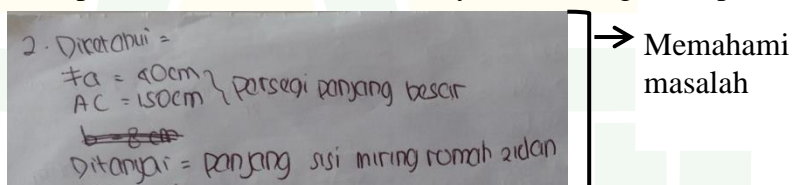 2. Diketahui =
Fa = 90cm
AC = 150cm } persegi panjang besar
b = 8 cm
Ditanyai = panjang sisi miring romah zidan
→ Memahami
masalah